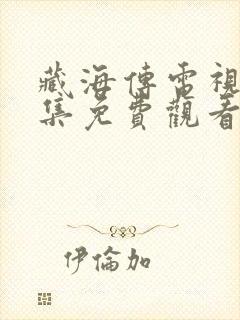 藏海傳電視
集免費觀看
伊倫加